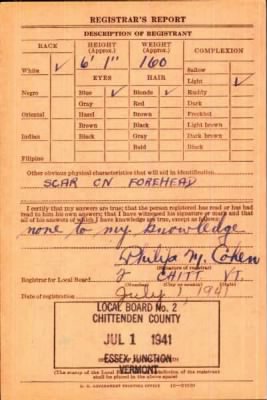 REGISTRAR'S REPORT
DESCRIPTION OF REGISTRANT
RACE HEIGHT (Approx.) WEIGHT (Approx.) COMPLEXION
White ✓ 6' 1" 160 Sallow
EYES HAIR Light ✓
Negro Blue ✓ Blonde ✓ Ruddy
Gray Red Dark
Oriental Hazel Brown Freckled
Brown Black Light brown
Indian Black Gray Dark brown
Bald Black
Filipino
Other obvious physical characteristics that will aid in identification
SCAR ON FOREHEAD
I certify that my answers are true; that the person registered has read or has had
read to him his own answers; that I have witnessed his signature or mark and that
all of his answers of which I have knowledge are true, except as follows:
none to my knowledge
Philip M. Cohen
(Signature of registrar)
Registrar for Local Board 2 CHITT VT.
(Number) (City or county) (State)
Date of registration July 1 1941
LOCAL BOARD No. 2
CHITTENDEN COUNTY
JUL 1 1941
ESSEX JUNCTION
VERMONT
(The stamp of the Local Board of the registrant
shall be placed in the above space)
U. S. GOVERNMENT PRINTING OFFICE